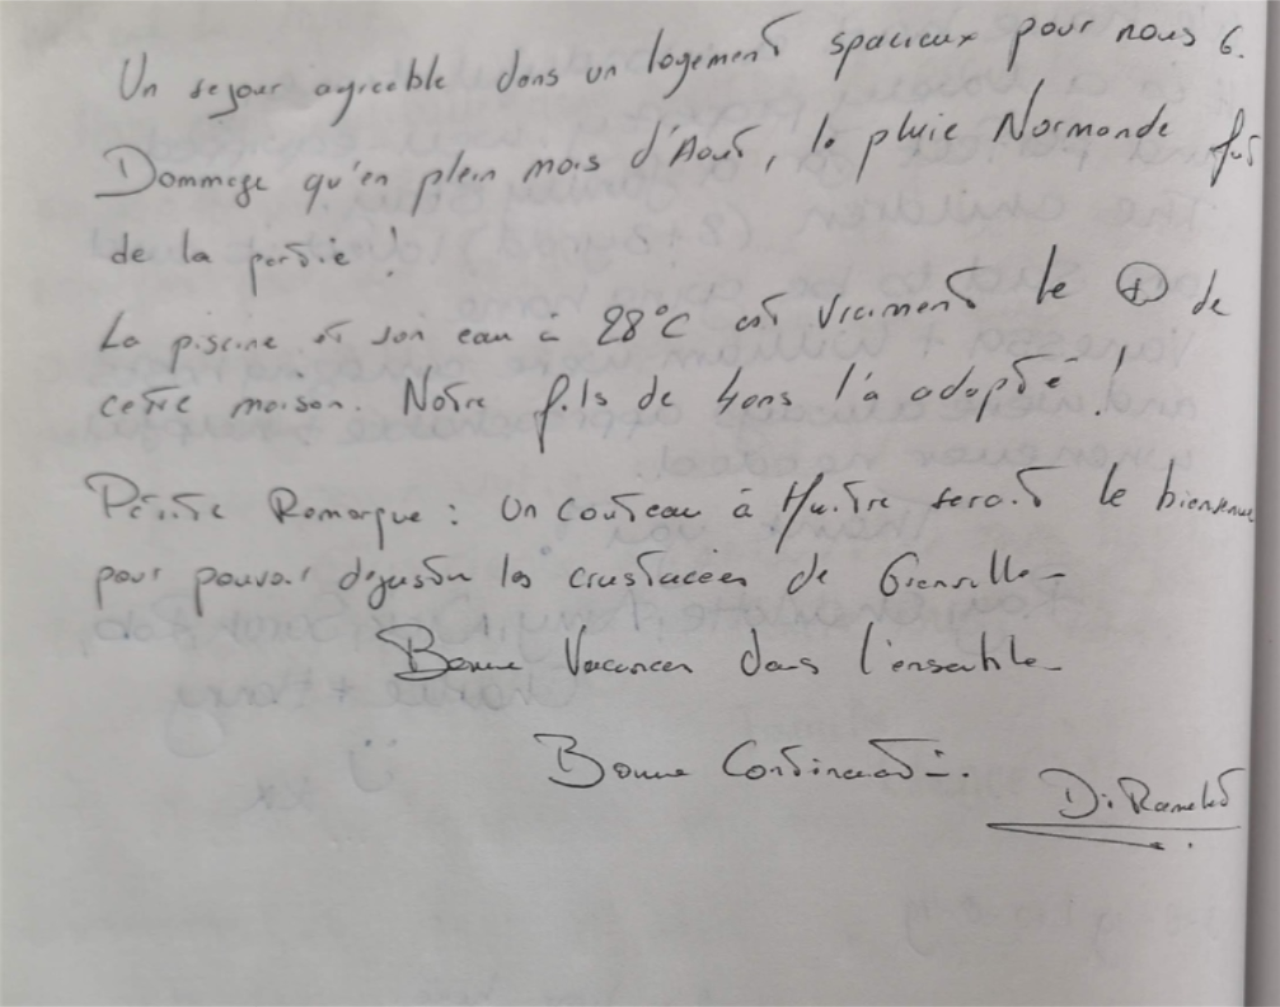 Un sejour agreable dans un logement spacieux pour nous 6.
Dommage qu'en plein mois d'Aout, la pluie Normande fut
de la partie !
La piscine et son eau à 28°C est vraiment le ⊕ de
cette maison. Notre fils de 4ans l'a adopté !
Petite Remarque : Un couteau à Huitre serait le bienvenue
pour pouvoir déguster les crustacées de Granville
Bonne Vacances dans l'ensemble
Bonne Continuation.